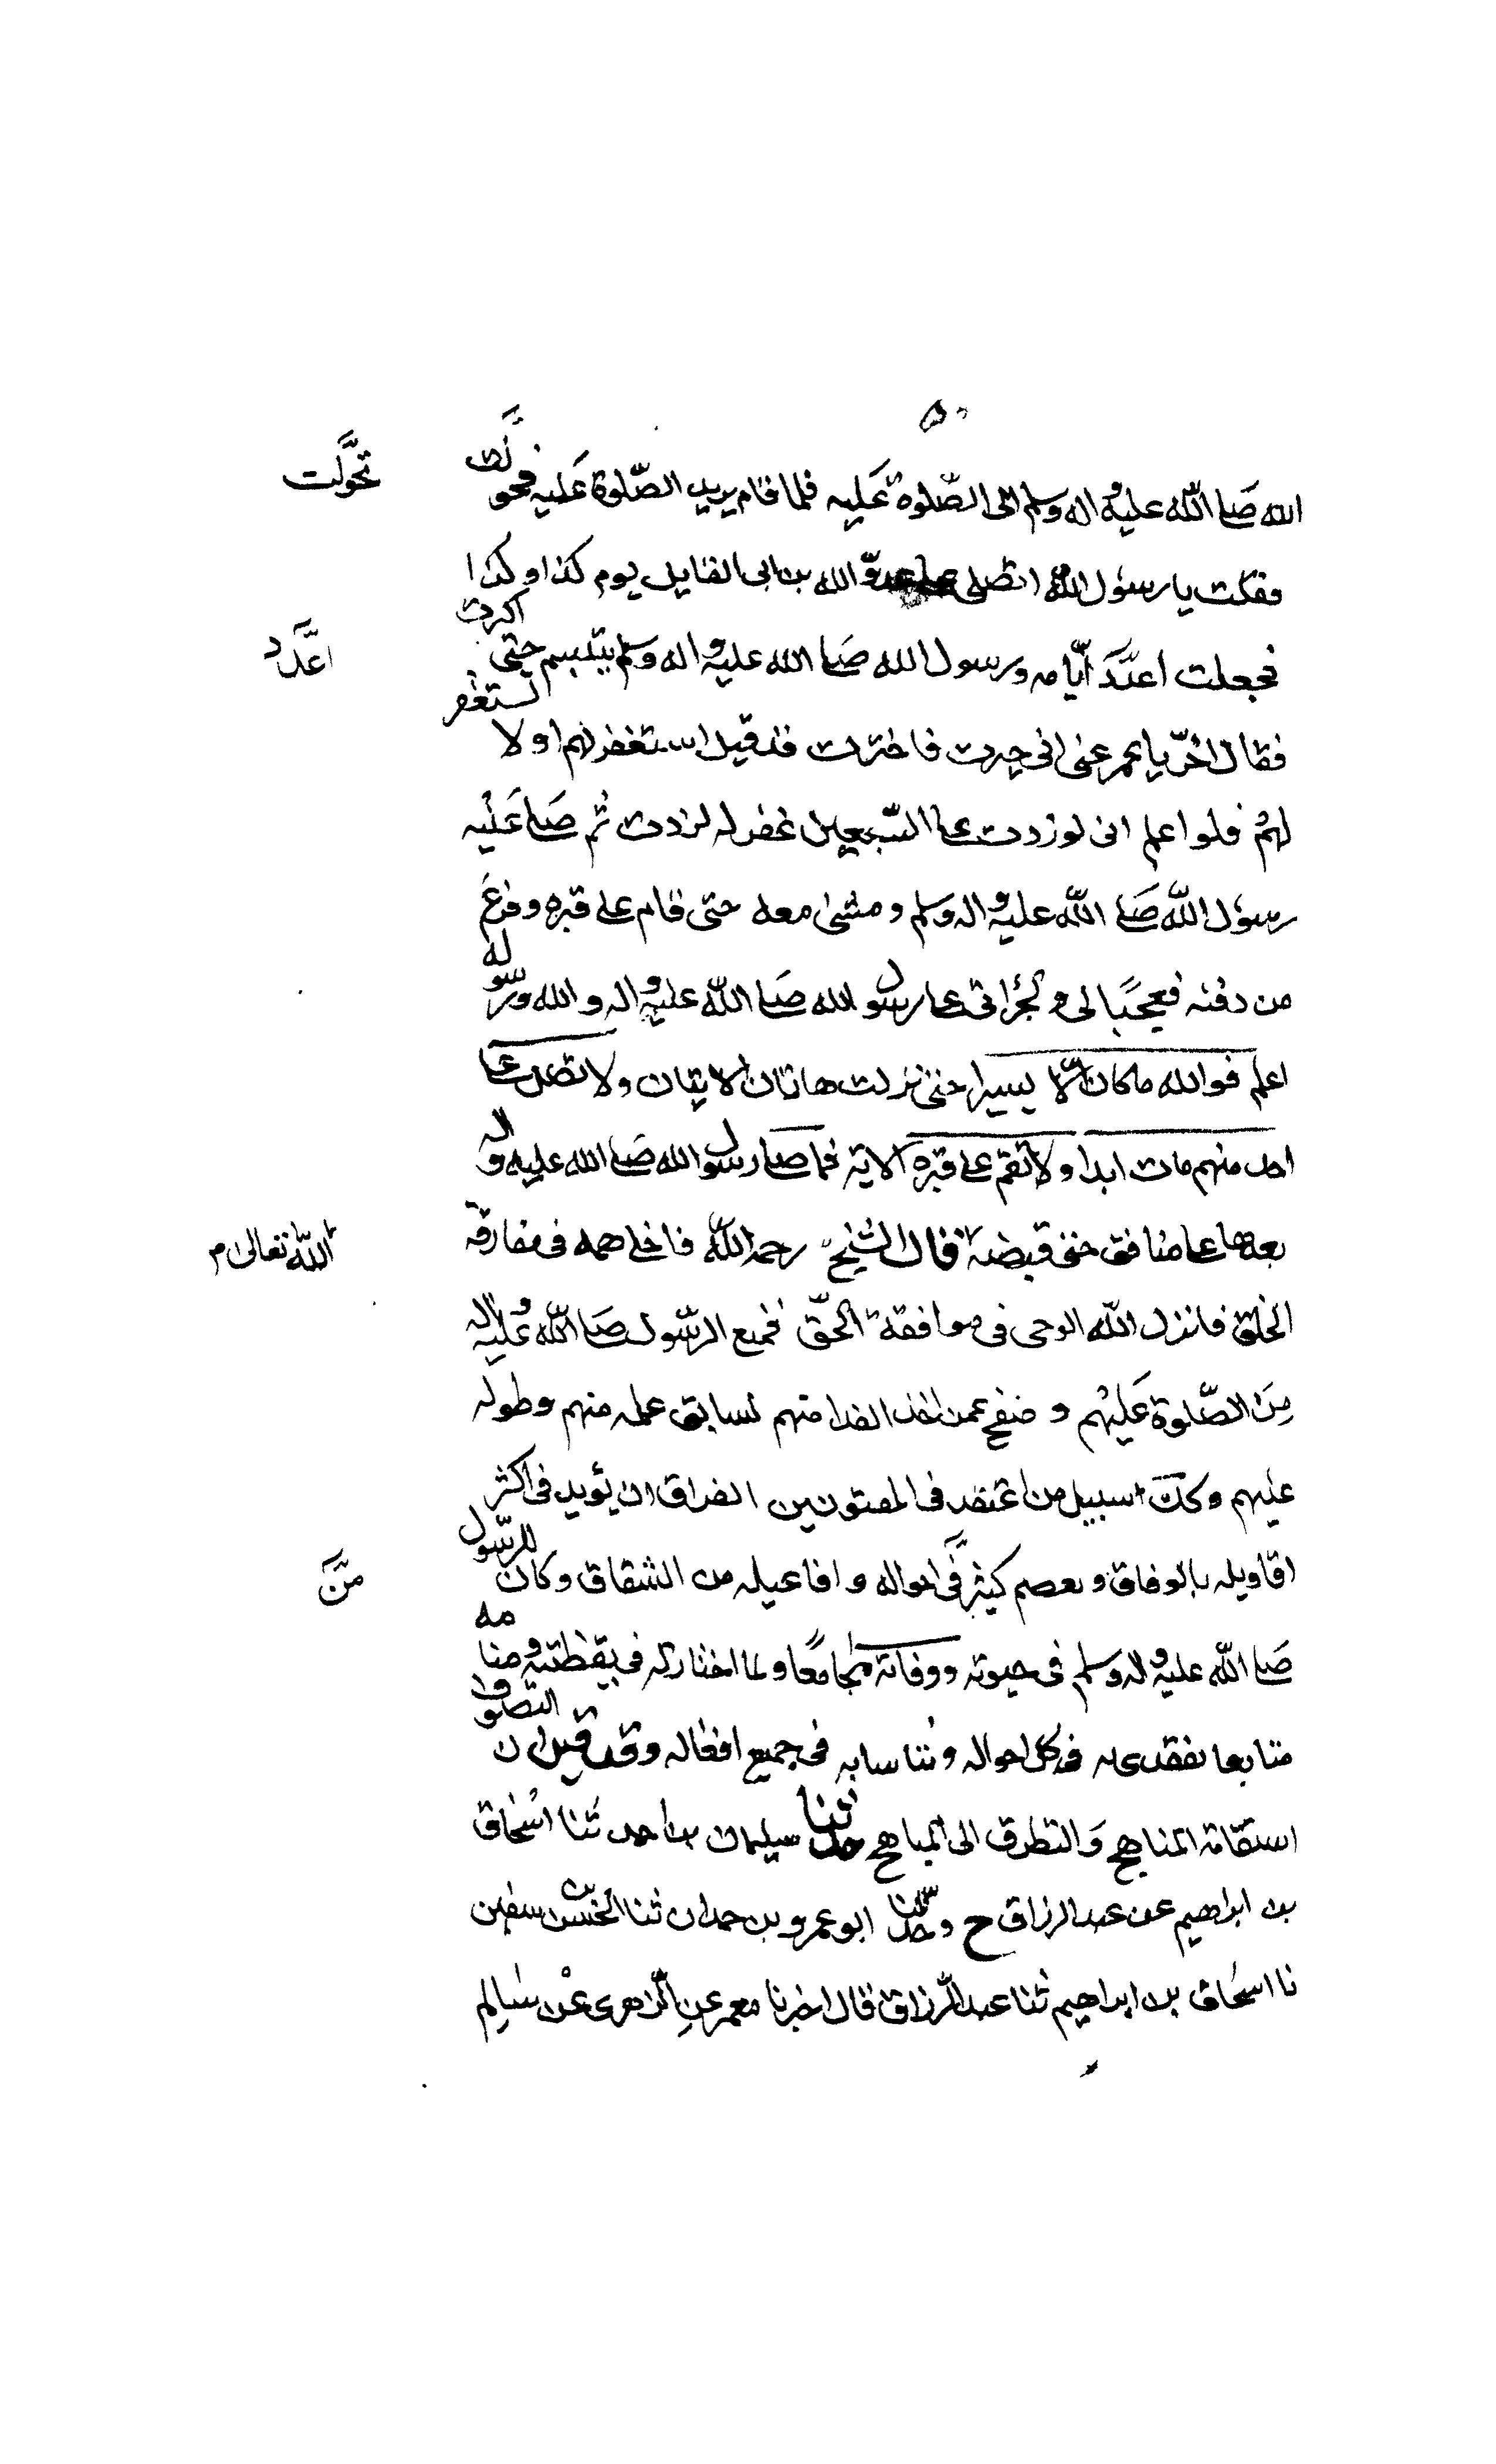 ٥٠
الله صلى الله عليه واله وسلم الى الصلوة عليه فلما قام يريد الصلوة عليه فتحولت
تحولت
فقلت يا رسول الله اتصلى على عدو الله بن ابى القايل يوم كذا وكذا
فجعلت اعدد ايامه ورسول الله صلى الله عليه واله وسلم يتبسم حتى اكثرت
اعدد
فقال اخر يا عمر عنى انى خيرت فاخترت قد قيل استغفر لهم او لا تستغفر
لهم فلو اعلم انى لو زدت على السبعين غفر له لزدت ثم صلى عليه
رسول الله صلى الله عليه واله وسلم ومشى معه حتى قام على قبره وفرغ
من دفنه فعجبا لى ولجراتى على رسول الله صلى الله عليه واله والله ورسوله
اعلم فوالله ما كان الا يسيرا حتى نزلت هاتان الايتان ولا تصل على
احد منهم مات ابدا ولا تقم على قبره الاية فما صلى رسول الله صلى الله عليه واله
بعدها على منافق حتى قبضه قال الشيخ رحمه الله فاخلى همه فى مفارقة
الله تعالى م
الخلق فانزل الله الوحى فى موافقة الحق فمنع الرسول صلى الله عليه واله
من الصلوة عليهم وصفح عمن اخذ الفدا منهم لسابق علمه منهم وطوله
عليهم وكذ سبيل من اعتقد فى المفتونين الفراق ان يؤيد فى اكثر
اقاويله بالوفاق ويعصم فى كثير احواله وافاعيله من الشقاق وكان للرسول
من
صلى الله عليه واله وسلم فى حيوته ووفاته مجامعا ولما اختار له فى يقظته ومنامه
متابعا يقتدى به فى كل احواله ويتاسا به فى جميع افعاله وقد قيل ان التصوف
استقامة المناهج والتطرق الى المباهج حدثنا سليمان بن احمد ثنا اسحاق
بن ابراهيم عن عبد الرزاق ح وحدثنا ابو عمرو بن حمدان ثنا الحسن بن سفين
نا اسحاق بن ابراهيم ثنا عبد الرزاق قال اخبرنا معمر عن الزهرى عن سالم